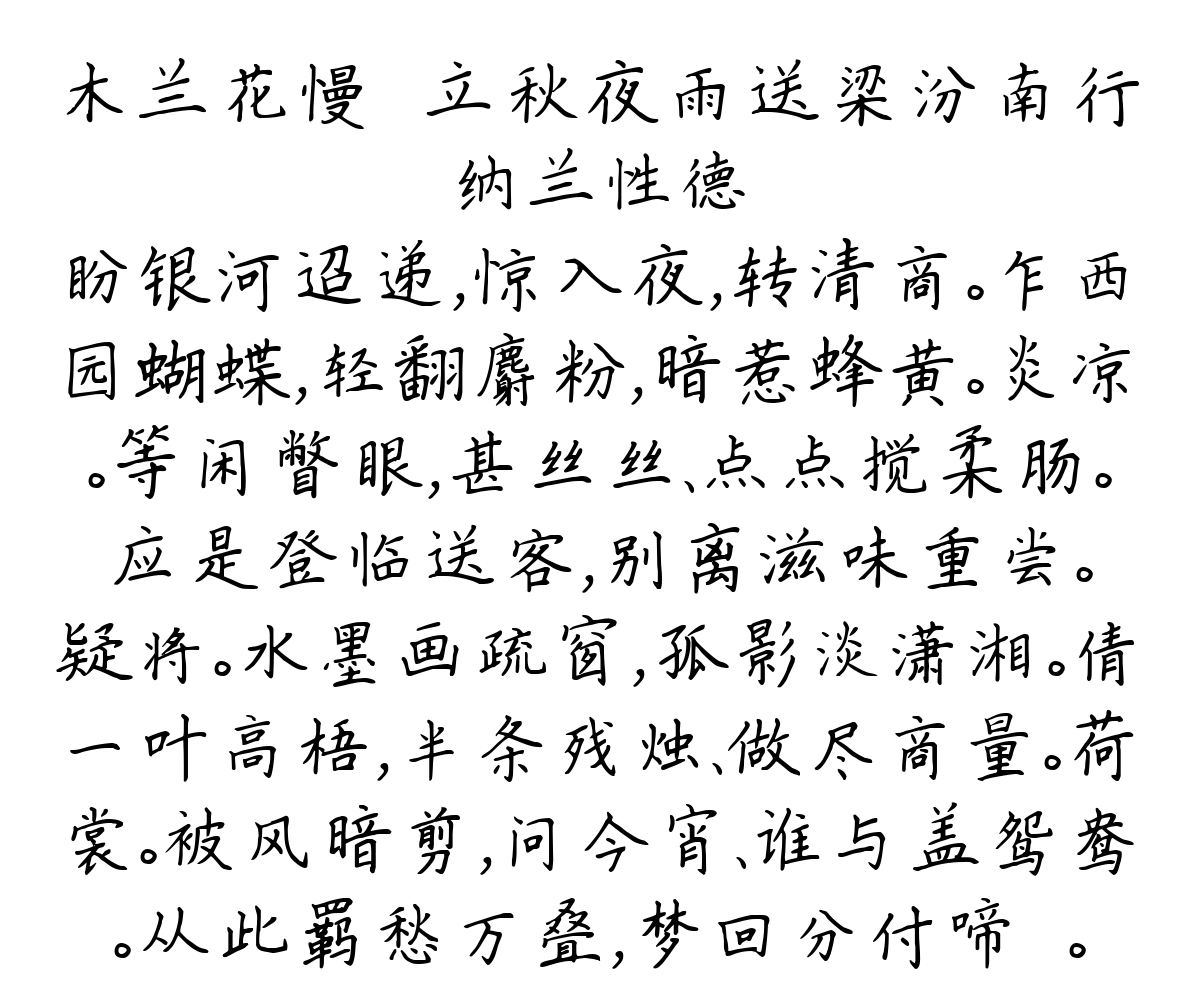 木兰花慢 立秋夜雨送梁汾南行
纳兰性德
盼银河迢递,惊入夜,转清商。乍西
园蝴蝶,轻翻麝粉,暗惹蜂黄。炎凉
。等闲瞥眼,甚丝丝、点点搅柔肠。
应是登临送客,别离滋味重尝。
疑将。水墨画疏窗,孤影淡潇湘。倩
一叶高梧,半条残烛、做尽商量。荷
裳。被风暗剪,问今宵、谁与盖鸳鸯
。从此羁愁万叠,梦回分付啼 。